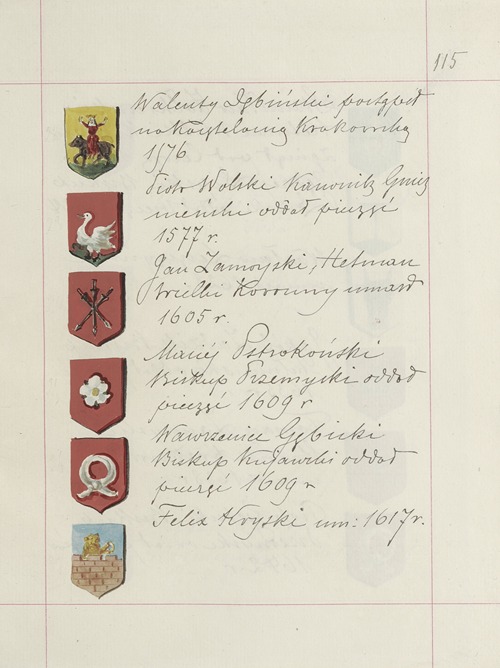 115
Walenty Dębiński postąpił
na Kasztelanię Krakowską
1576
Piotr Wolski Kanonik Gnieź
nieński oddał pieczęć
1577 r.
Jan Zamoyski, Hetman
Wielki Koronny umarł
1605 r.
Maciéj Pstrokoński
Biskup Przemyski oddał
pieczęć 1609 r
Wawrzeniec Gębicki
Biskup Kujawski oddał
pieczęć 1609 r
Felix Kryski um: 1617 r.